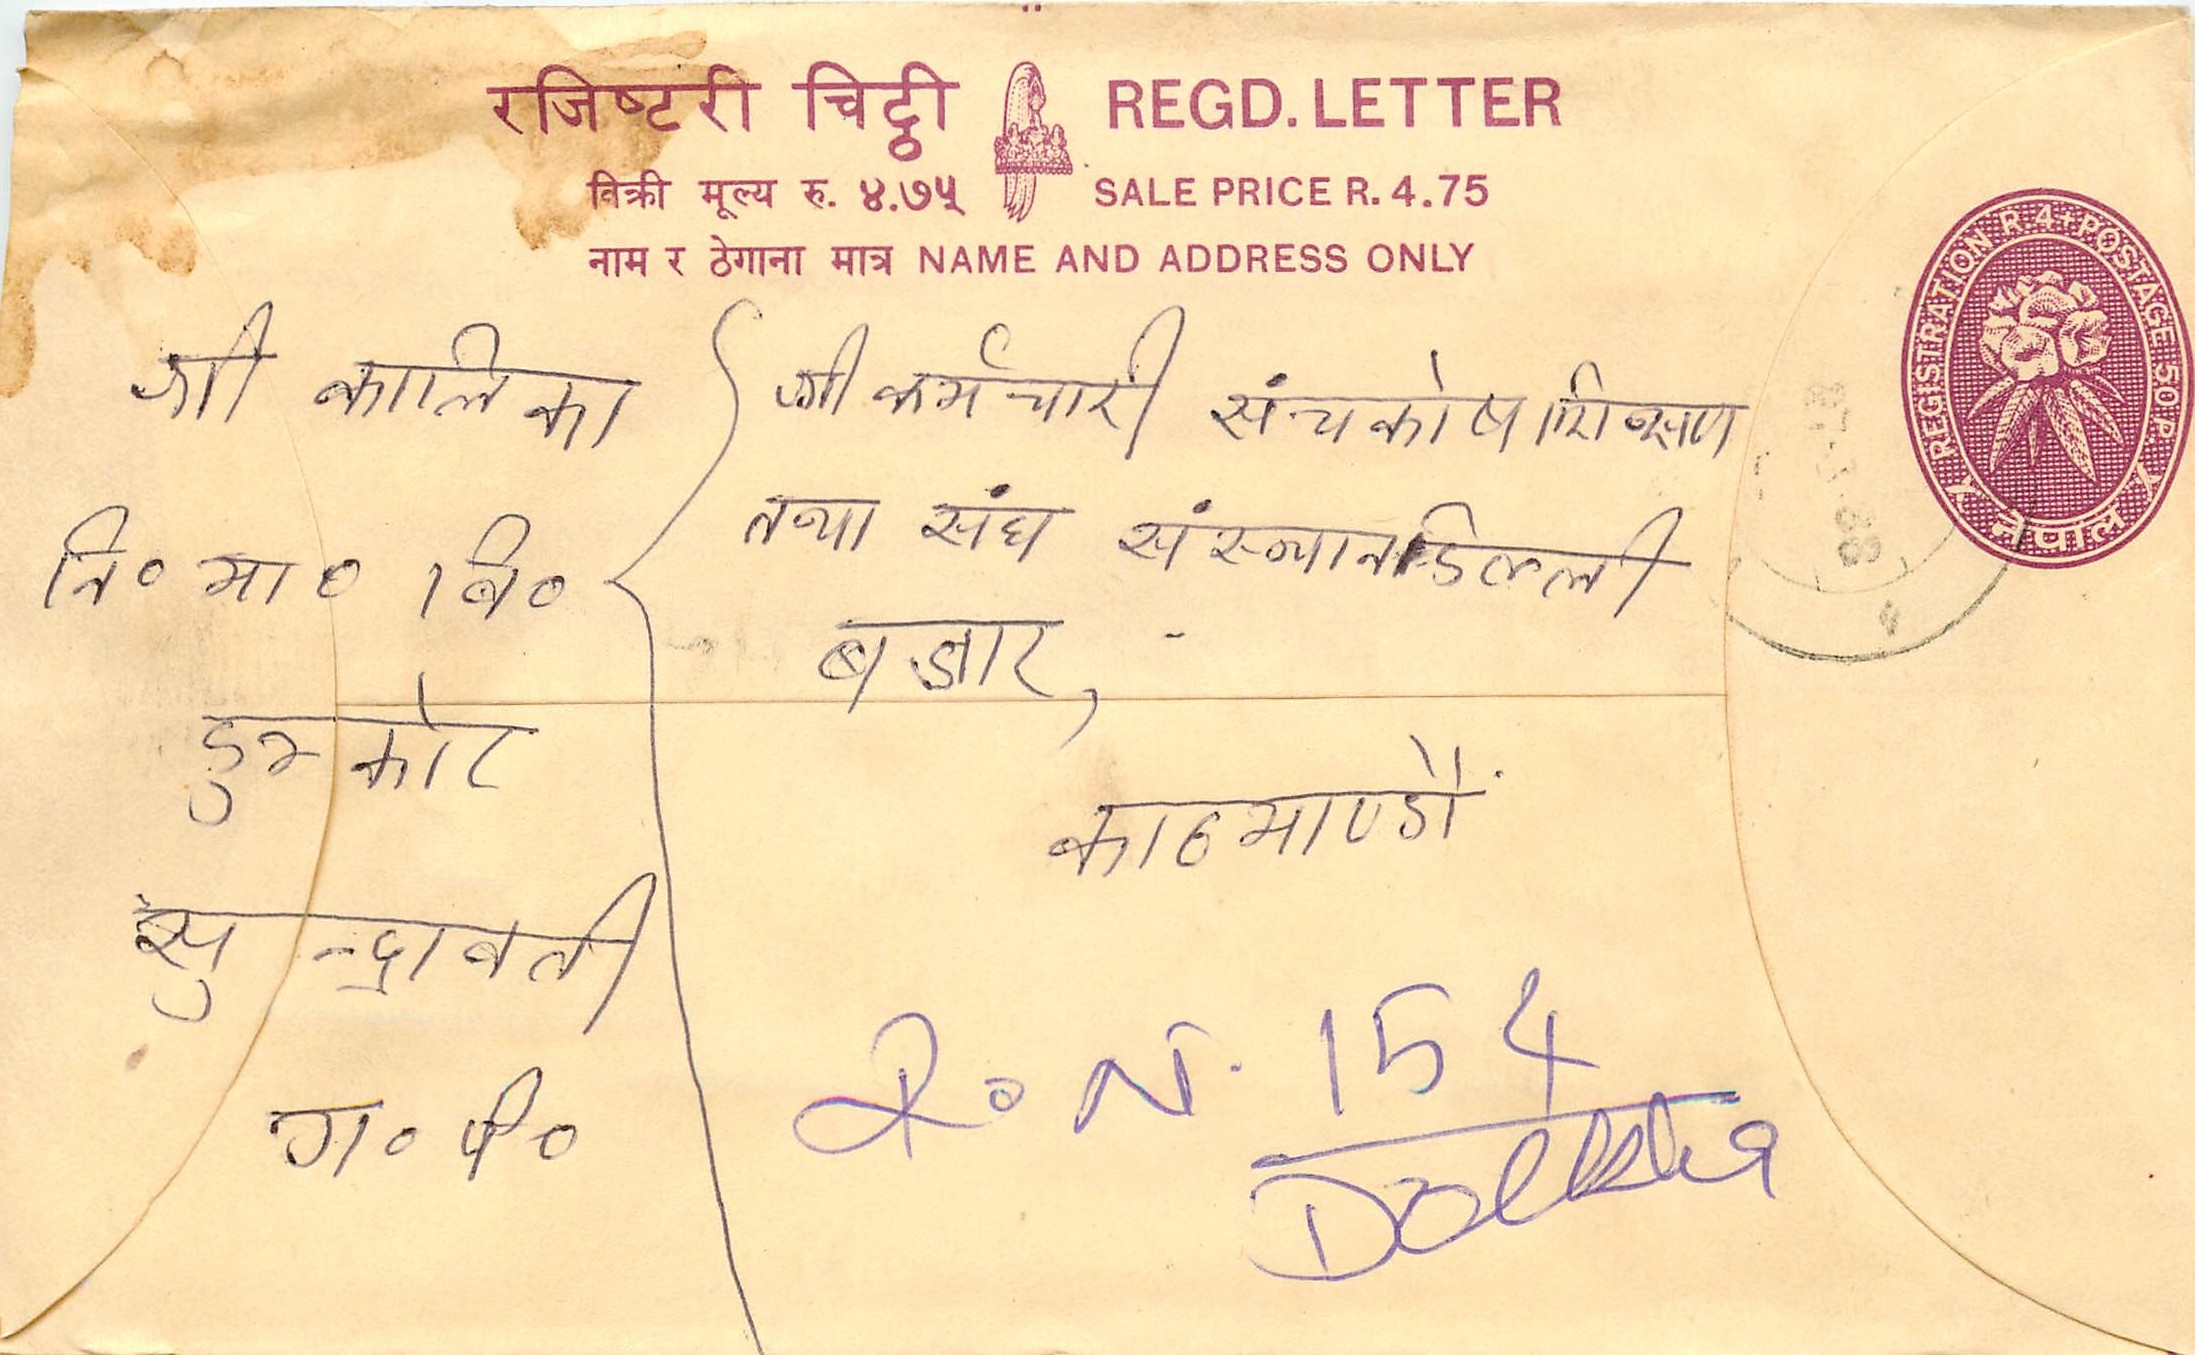 रजिष्टरी चिठ्ठी REGD. LETTER
विक्री मूल्य रु. ४.७५ SALE PRICE R. 4.75
नाम र ठेगाना मात्र NAME AND ADDRESS ONLY
REGISTRATION R 4+POSTAGE 50 P.
नेपाल
श्री कालिका
नि० मा० वि०
डुम्कोट
सुन्द्रावती
गा० पं०
श्री कर्मचारी संचय कोष शिक्षण
तथा संघ संस्थान डिल्ली
बजार,
काठमाण्डौ
R. N. 154
Dolkha